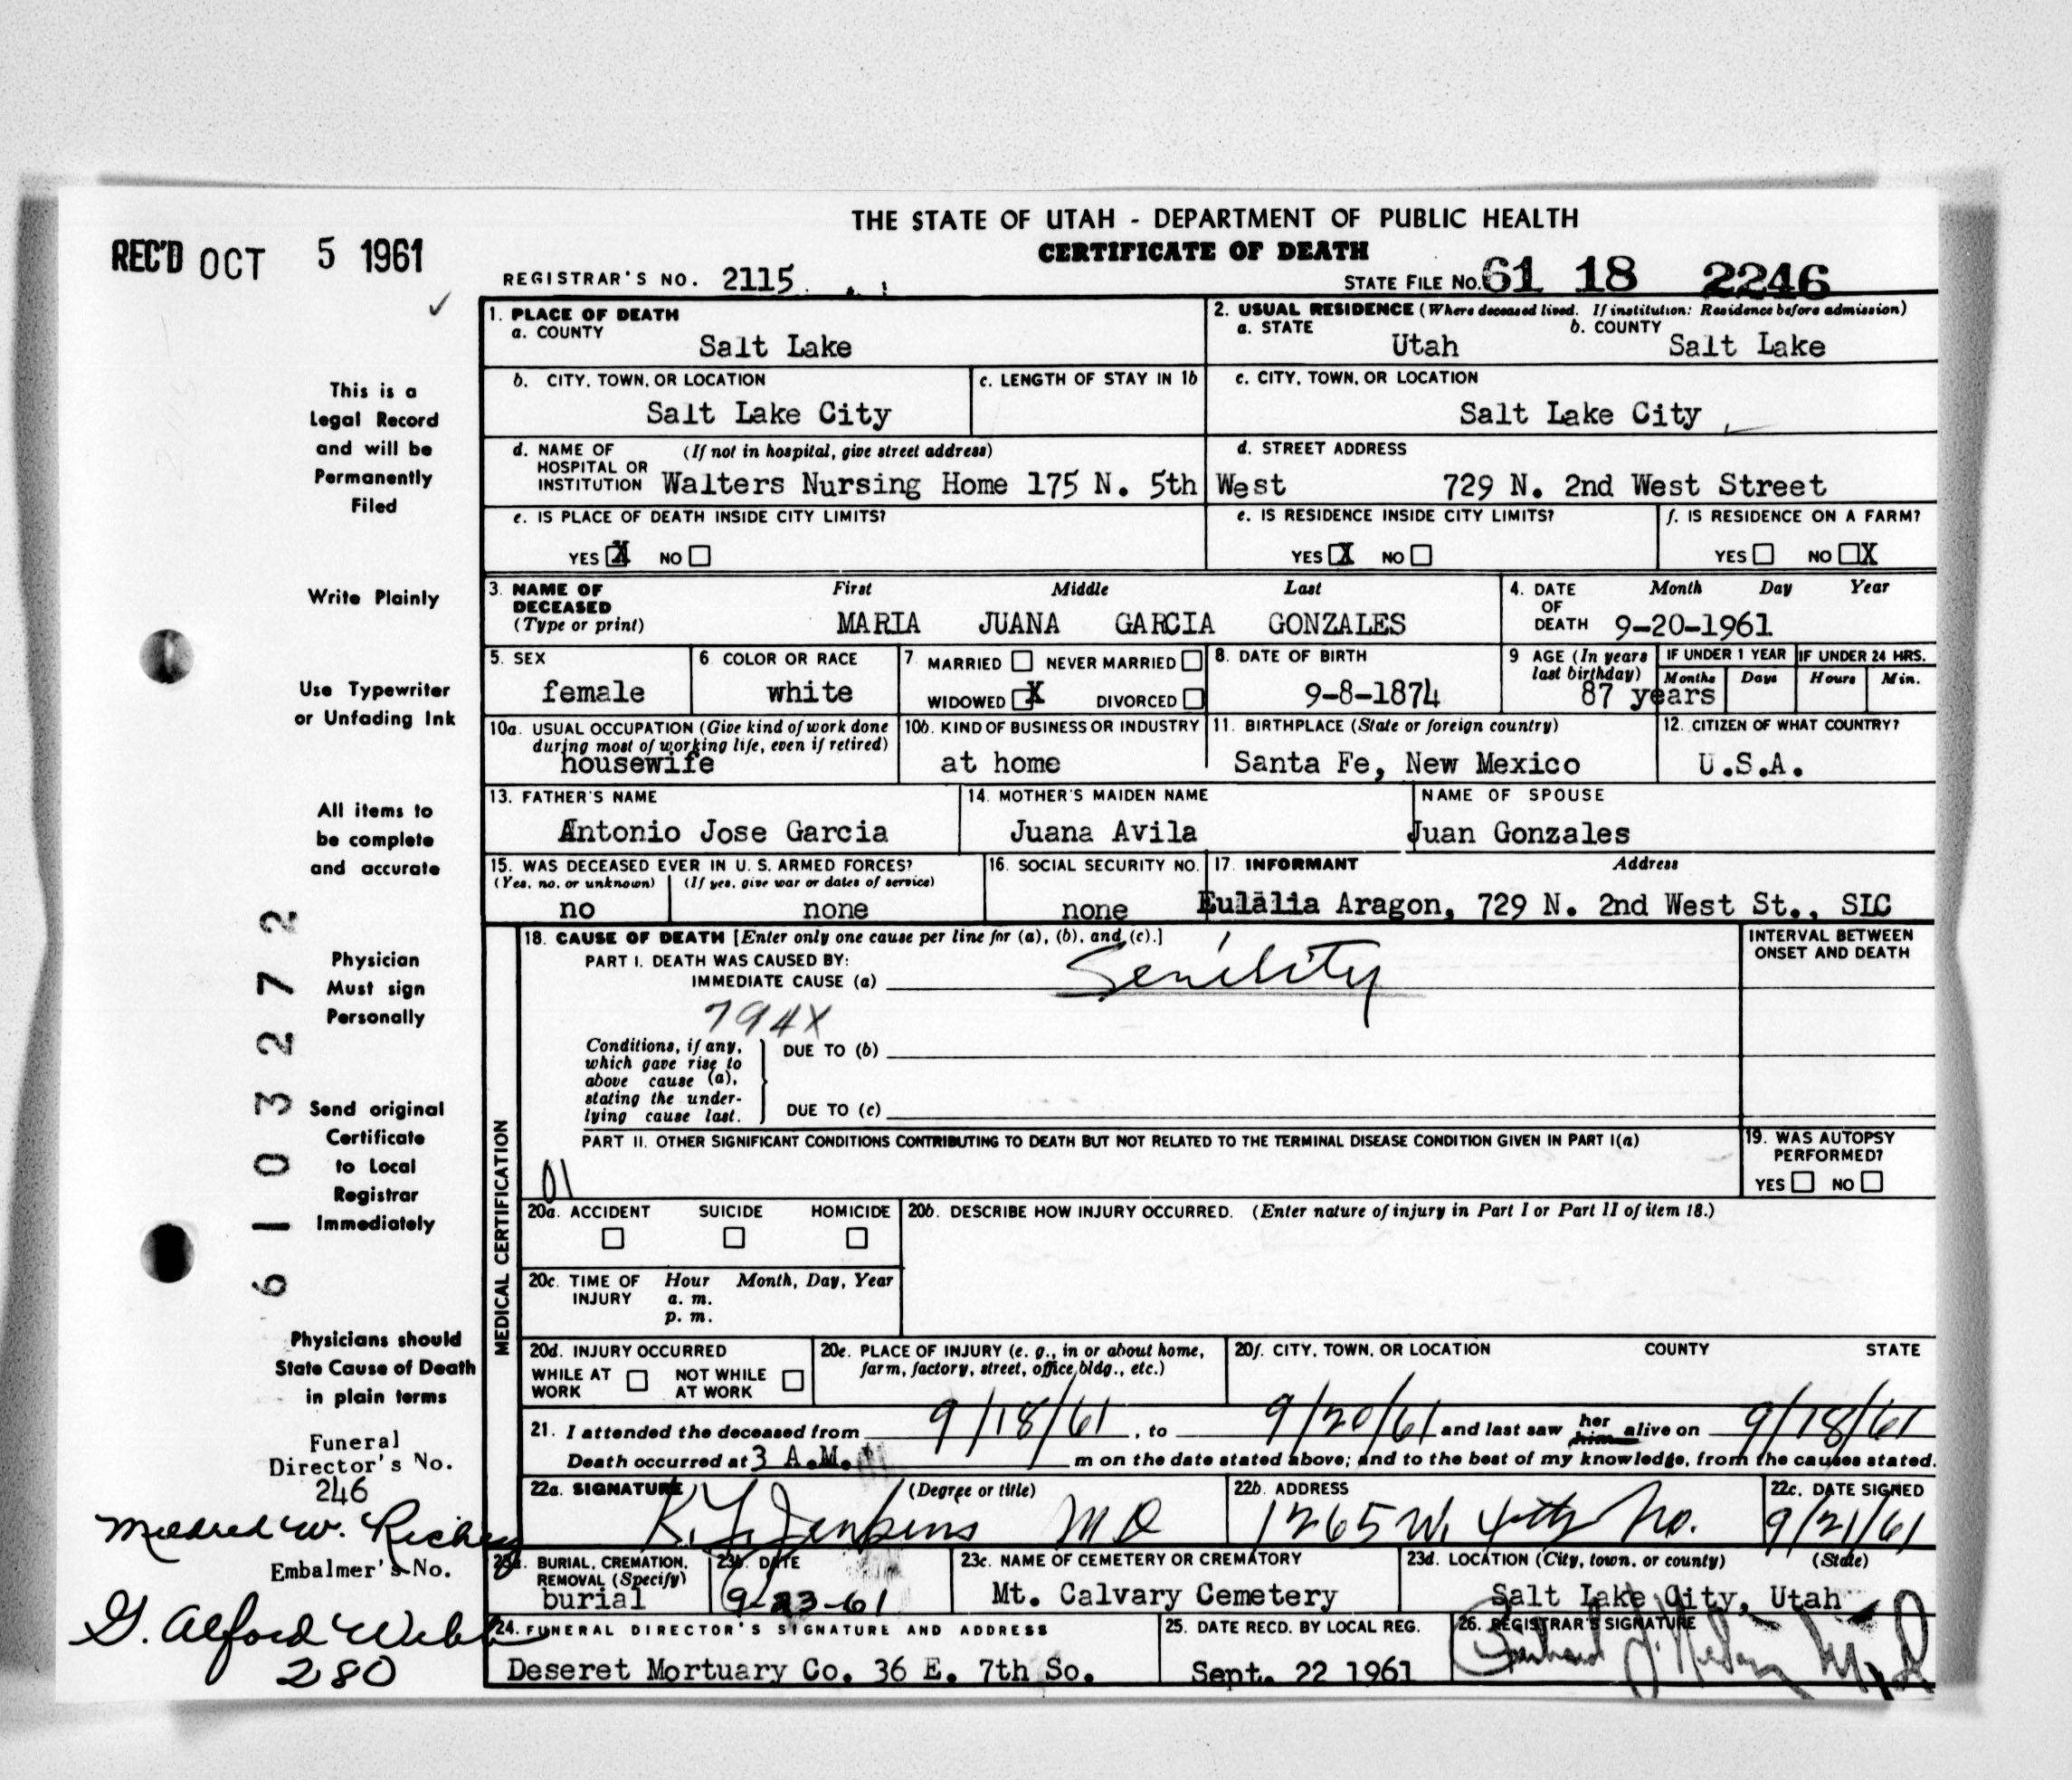 THE STATE OF UTAH - DEPARTMENT OF PUBLIC HEALTH
CERTIFICATE OF DEATH
REC'D OCT 5 1961
REGISTRAR'S NO. 2115
STATE FILE NO. 61 18 2246
1. PLACE OF DEATH
a. COUNTY
Salt Lake
2. USUAL RESIDENCE (Where deceased lived. If institution: Residence before admission)
a. STATE b. COUNTY
Utah Salt Lake
b. CITY, TOWN, OR LOCATION
Salt Lake City
c. LENGTH OF STAY IN 1b
c. CITY, TOWN, OR LOCATION
Salt Lake City
d. NAME OF HOSPITAL OR INSTITUTION (If not in hospital, give street address)
Walters Nursing Home 175 N. 5th West
d. STREET ADDRESS
729 N. 2nd West Street
e. IS PLACE OF DEATH INSIDE CITY LIMITS?
YES X NO
e. IS RESIDENCE INSIDE CITY LIMITS?
YES X NO
f. IS RESIDENCE ON A FARM?
YES NO X
3. NAME OF DECEASED (Type or print)
First Middle Last
MARIA JUANA GARCIA GONZALES
4. DATE OF DEATH Month Day Year
9-20-1961
5. SEX
female
6. COLOR OR RACE
white
7. MARRIED NEVER MARRIED
WIDOWED X DIVORCED
8. DATE OF BIRTH
9-8-1874
9 AGE (In years last birthday)
87 years
IF UNDER 1 YEAR IF UNDER 24 HRS.
Months Days Hours Min.
10a. USUAL OCCUPATION (Give kind of work done during most of working life, even if retired)
housewife
10b. KIND OF BUSINESS OR INDUSTRY
at home
11. BIRTHPLACE (State or foreign country)
Santa Fe, New Mexico
12. CITIZEN OF WHAT COUNTRY?
U.S.A.
13. FATHER'S NAME
Antonio Jose Garcia
14. MOTHER'S MAIDEN NAME
Juana Avila
NAME OF SPOUSE
Juan Gonzales
15. WAS DECEASED EVER IN U. S. ARMED FORCES?
(Yes, no, or unknown) (If yes, give war or dates of service)
no none
16. SOCIAL SECURITY NO.
none
17. INFORMANT Address
Eulalia Aragon, 729 N. 2nd West St., SlC
18. CAUSE OF DEATH [Enter only one cause per line for (a), (b), and (c).]
PART I. DEATH WAS CAUSED BY:
IMMEDIATE CAUSE (a) Senility
794X
Conditions, if any, which gave rise to above cause (a), stating the underlying cause last.
DUE TO (b)
DUE TO (c)
INTERVAL BETWEEN ONSET AND DEATH
PART II. OTHER SIGNIFICANT CONDITIONS CONTRIBUTING TO DEATH BUT NOT RELATED TO THE TERMINAL DISEASE CONDITION GIVEN IN PART I(a)
01
19. WAS AUTOPSY PERFORMED?
YES NO
MEDICAL CERTIFICATION
20a. ACCIDENT SUICIDE HOMICIDE
20b. DESCRIBE HOW INJURY OCCURRED. (Enter nature of injury in Part I or Part II of item 18.)
20c. TIME OF INJURY Hour Month, Day, Year
a. m.
p. m.
20d. INJURY OCCURRED
WHILE AT WORK NOT WHILE AT WORK
20e. PLACE OF INJURY (e. g., in or about home, farm, factory, street, office bldg., etc.)
20f. CITY, TOWN, OR LOCATION COUNTY STATE
21. I attended the deceased from 9/18/61, to 9/20/61 and last saw her him alive on 9/18/61
Death occurred at 3 A.M. m on the date stated above; and to the best of my knowledge, from the causes stated.
22a. SIGNATURE (Degree or title)
K. L. Jenkins MD
22b. ADDRESS
1265 W. 4th No.
22c. DATE SIGNED
9/21/61
23a. BURIAL, CREMATION, REMOVAL (Specify)
burial
23b. DATE
9-23-61
23c. NAME OF CEMETERY OR CREMATORY
Mt. Calvary Cemetery
23d. LOCATION (City, town, or county) (State)
Salt Lake City, Utah
24. FUNERAL DIRECTOR'S SIGNATURE AND ADDRESS
Deseret Mortuary Co. 36 E. 7th So.
25. DATE RECD. BY LOCAL REG.
Sept. 22 1961
26. REGISTRAR'S SIGNATURE
This is a
Legal Record
and will be
Permanently
Filed
Write Plainly
Use Typewriter
or Unfading Ink
All items to
be complete
and accurate
Physician
Must sign
Personally
Send original
Certificate
to Local
Registrar
Immediately
Physicians should
State Cause of Death
in plain terms
Funeral
Director's No.
246
Mildred W. Richey
Embalmer's No.
G. Alford Webb
280
6 1 0 3 2 7 2